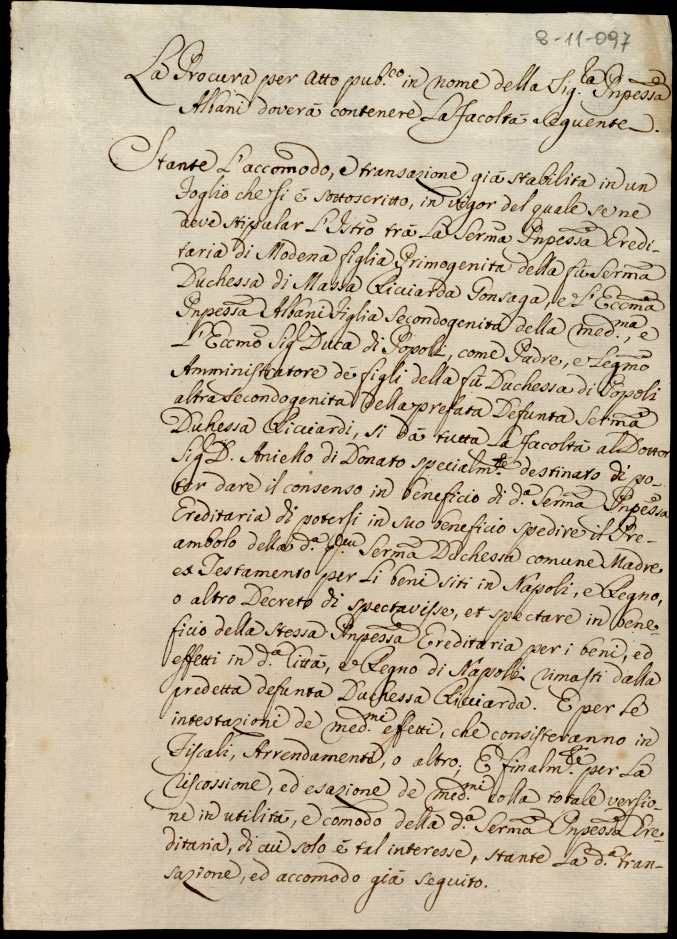 8-11-097
La Procura per atto pub.co in nome della Sig.ra Pnpessa
Albani doverà contenere La facoltà seguente.
Stante L'accomodo, e transazione già stabilita in un
foglio che si è sottoscritto, in vigor del quale se ne
deve stipular L'Istro trà La Serma Pnpessa Eredi-
taria di Modena figlia Primogenita della fù Serma
Duchessa di Massa Ricciarda Gonsaga, e L'Eccma
Pnpessa Albani figlia Secondogenita della med.ma, e
L'Eccmo Sig Duca di Popoli, come Padre, e Legmo
Amministratore dè figli della fù Duchessa di Popoli
altra secondogenita della prefata Defunta Serma
Duhessa Ricciardi, si dà tutta La facoltà al Dottor
Sig D. Aniello di Donato specialm.te destinato di po-
ter dare il consenso in beneficio di d.a Serma Pnpessa
Ereditaria di potersi in suo beneficio spedire il Pre-
ambolo della d.a Serma Duchessa comune Madre
ex Testamento per Li beni siti in Napoli, e Regno,
o altro Decreto di spectavisse, et spectare in bene-
ficio della stessa Pnpessa Ereditaria per i beni, ed
effetti in d.a Città, e Regno di Napoli rimasti dalla
predetta defunta Duchessa Ricciarda. E per Le
intestazioni de med.mi effetti, che consisteranno in
Fiscali, Arrendamenti, o altro; E finalm.te per La
riscossione, ed esazione de med.mi colla totale versio-
ne in utilità, e comodo della d.a Serma Pnpessa Ere-
ditaria, di cui solo è tal interesse, stante La d.a tran-
sazione, ed accomodo già seguito.